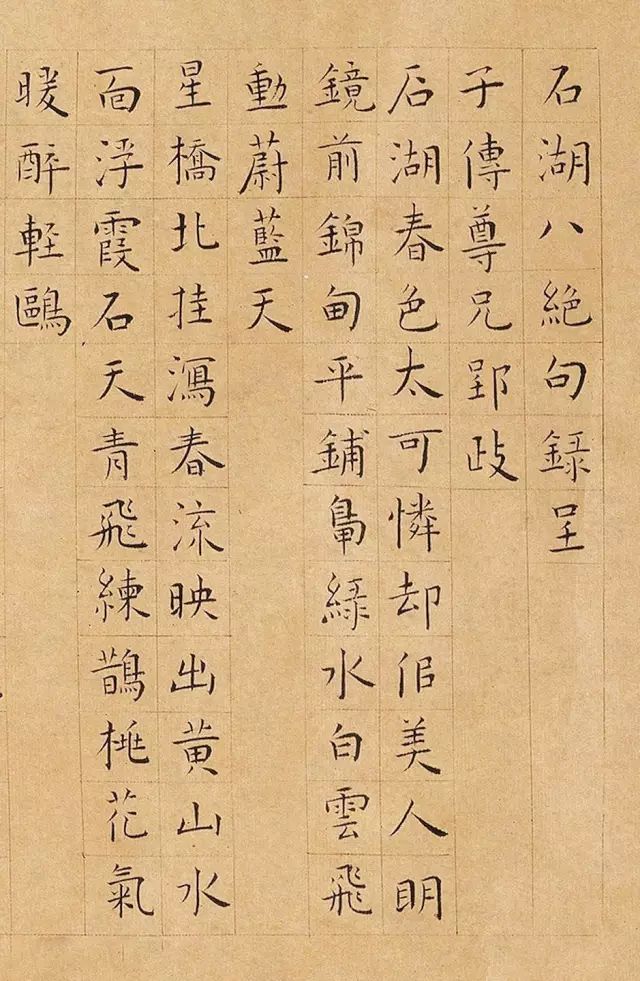 石湖八絶句録呈
子傳尊兄郢政
石湖春色太可憐却佀美人明
鏡前錦甸平鋪鴨綠水白雲飛
動蔚藍天
星橋北挂瀉春流映出黄山水
面浮霞石天青飛練鵲桃花氣
暖醉軽鷗